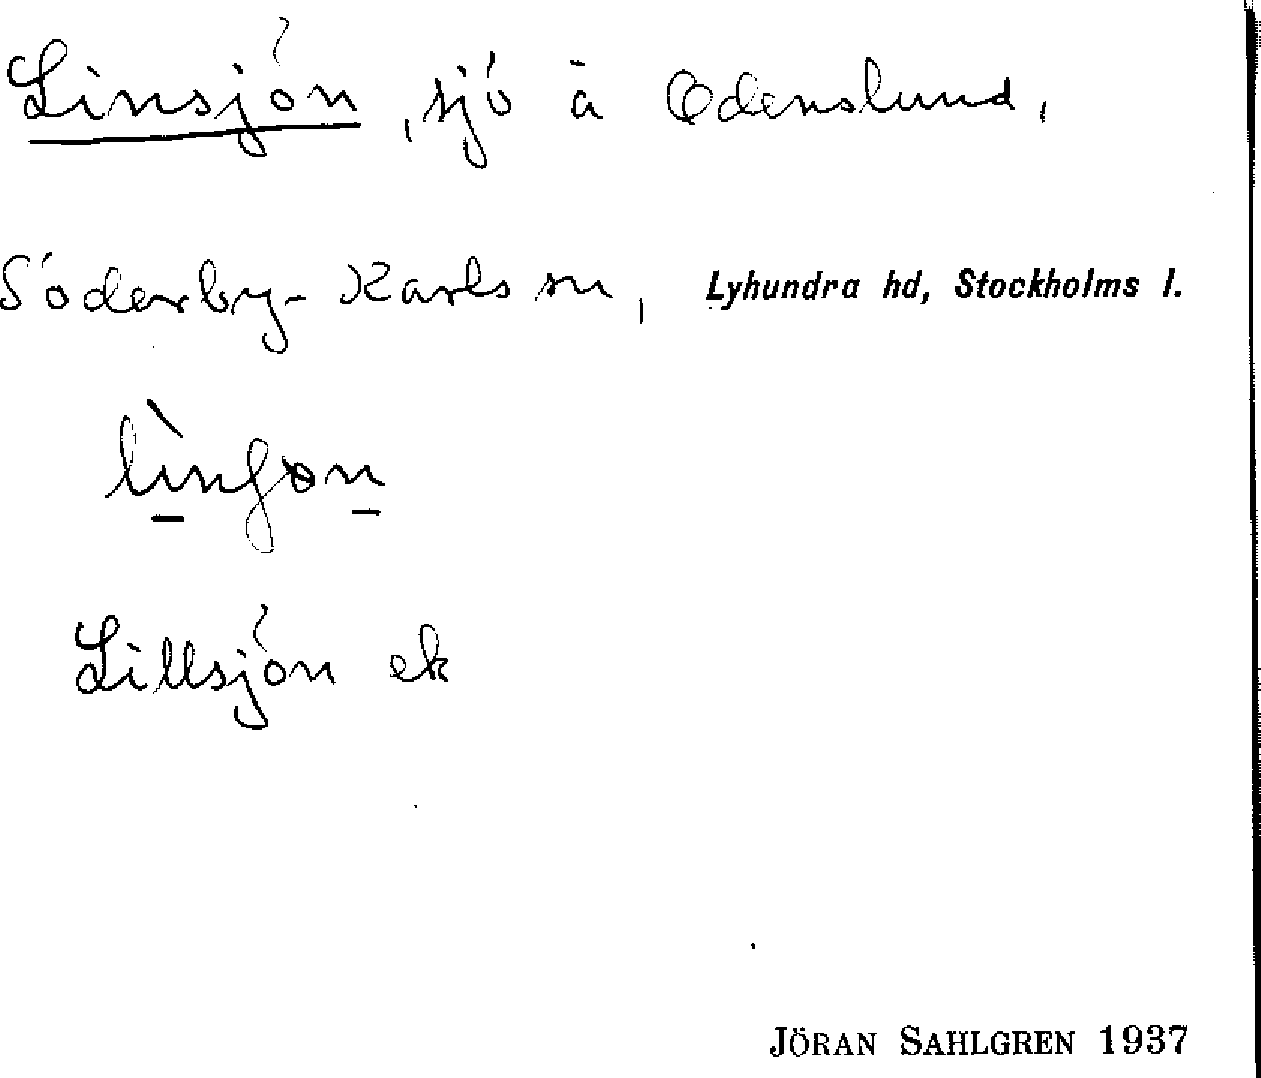 Linsjön, sjö å Odenslund,
Söderby-Karls sn, Lyhundra hd, Stockholms l.
Lillsjön ek
JÖRAN SAHLGREN 1937